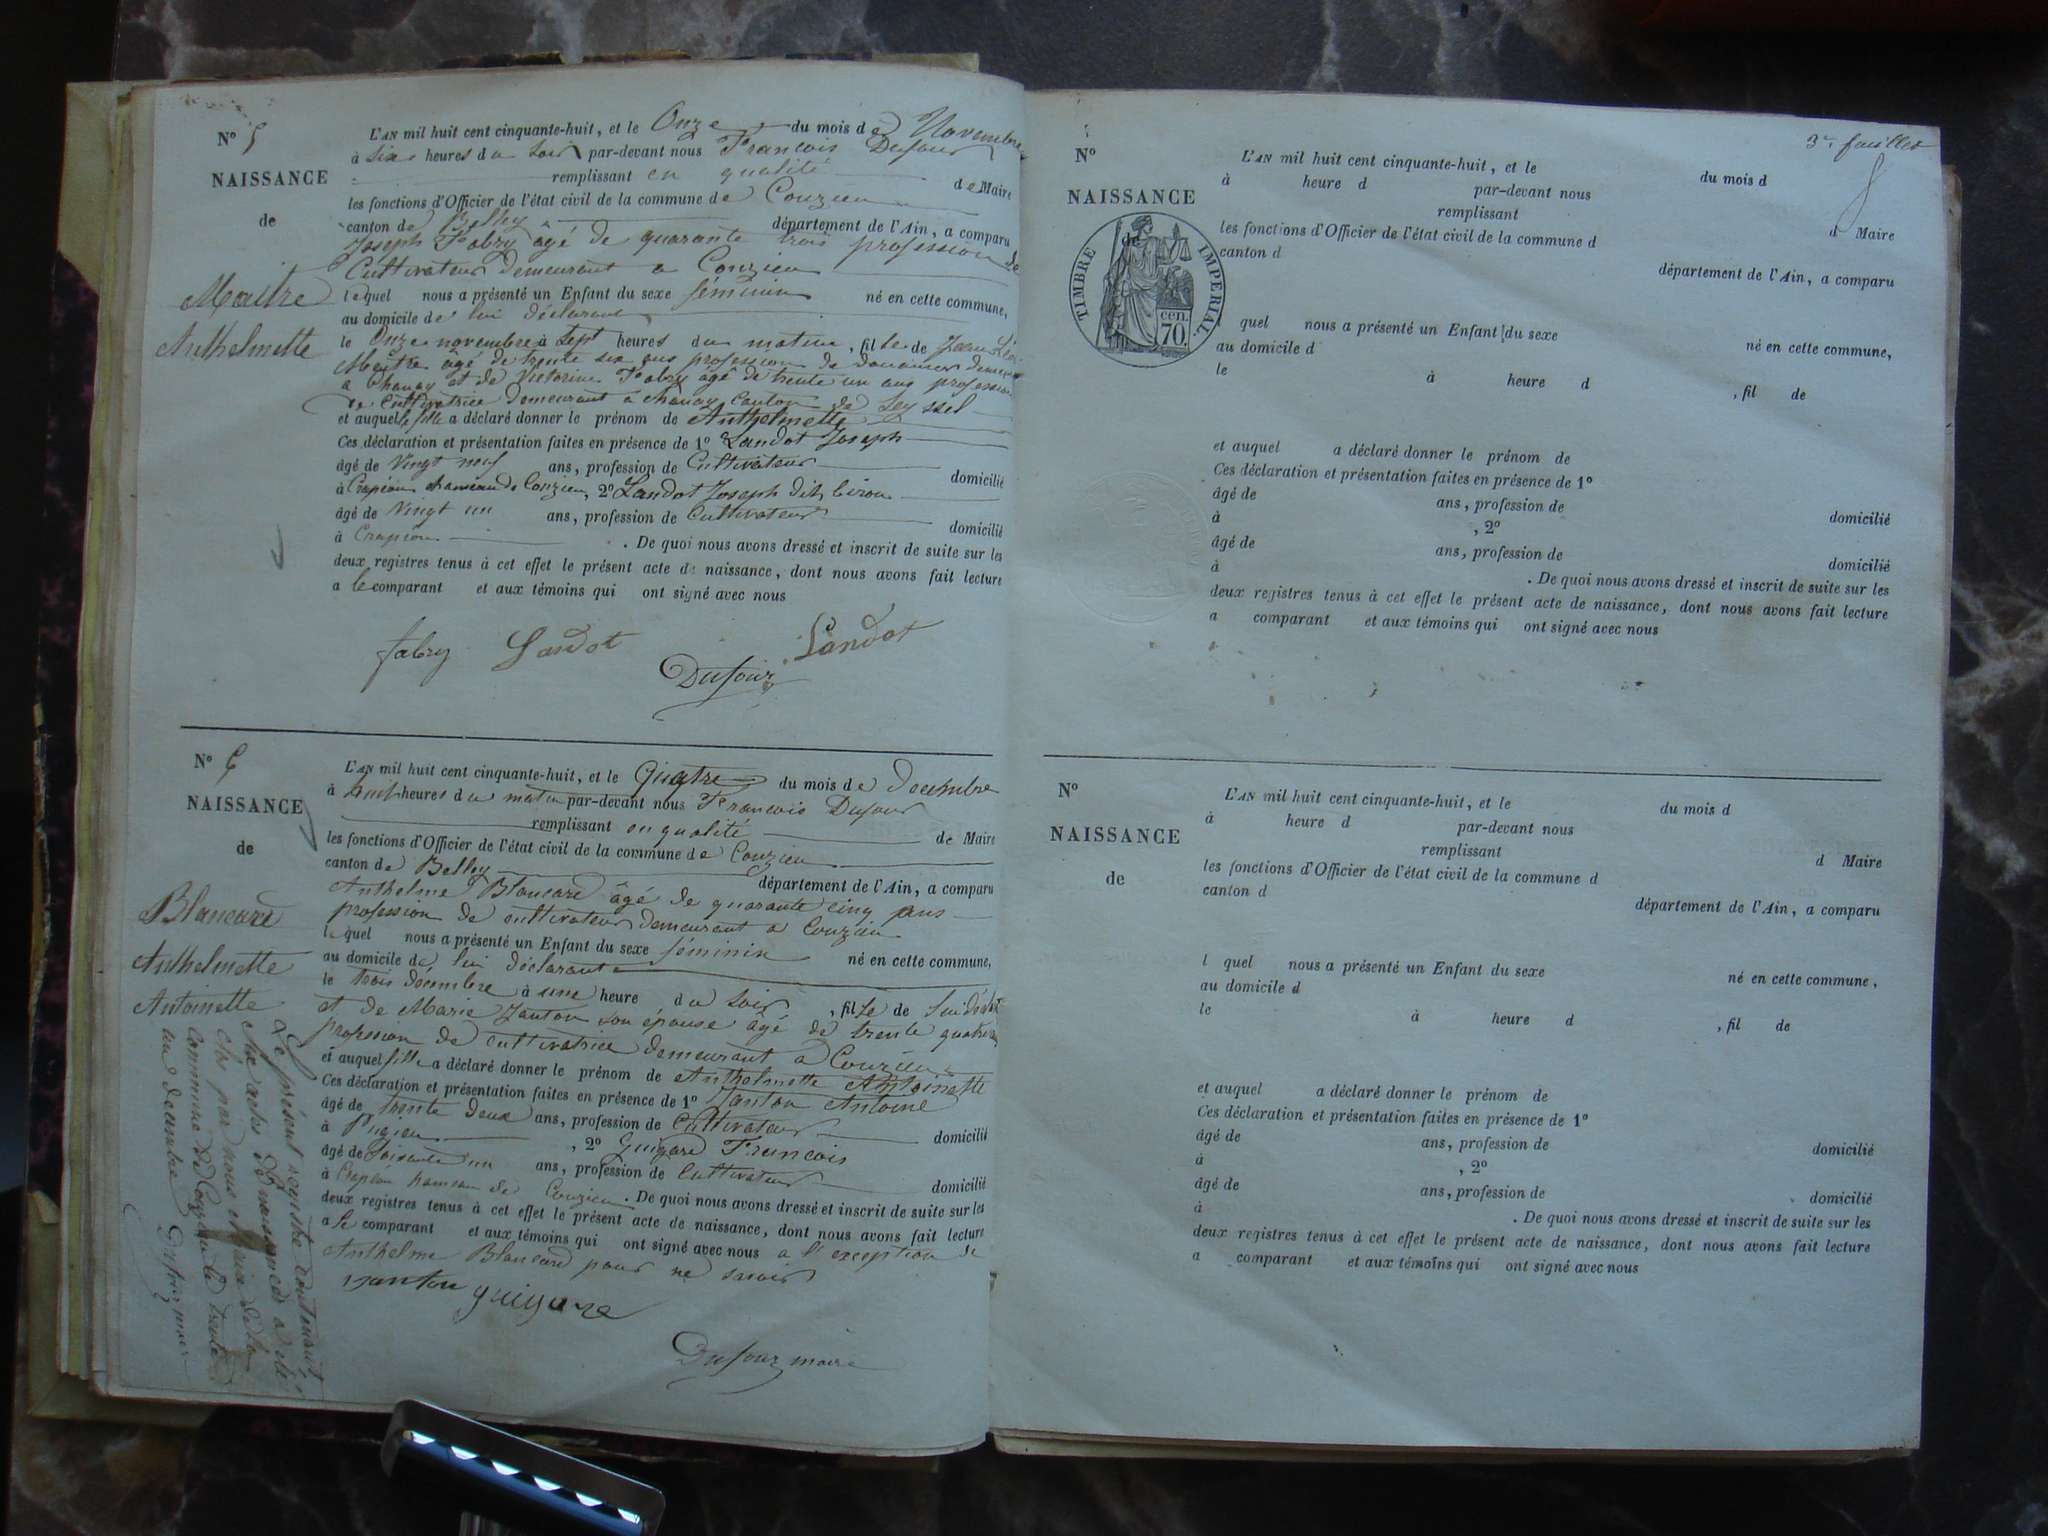 N° 5
NAISSANCE
de
Maitre
Anthelmette
L'AN mil huit cent cinquante-huit, et le Onze du mois de Novembre
à six heures du soir par-devant nous Francois Dufour
remplissant en qualité de Maire
les fonctions d'Officier de l'état civil de la commune de Conzieu
canton de Belley département de l'Ain, a comparu
Joseph Fabry âgé de quarante trois profession de
Cultivateur demeurant a Conzieu
lequel nous a présenté un Enfant du sexe féminin né en cette commune,
au domicile de lui déclarant
le Onze novembre à Sept heures du matin, fille de Jean
Maitre âgé de trente six ans profession de douanier
a Chanay et de Victorine Fabry âgé de trente un ans profession
de cultivatrice demeurant à chanay Canton de Seyssel
et auquel fille a déclaré donner le prénom de Anthelmette
Ces déclaration et présentation faites en présence de 1° Landot Joseph
âgé de Vingt neuf ans, profession de Cultivateur domicilié
à Crapéou hameau de Conzieu, 2° Landot Joseph dit
âgé de Vingt un ans, profession de Cultivateur domicilié
à Crapéou. De quoi nous avons dressé et inscrit de suite sur les
deux registres tenus à cet effet le présent acte de naissance, dont nous avons fait lecture
a le comparant et aux témoins qui ont signé avec nous
fabry Landot Landot
Dufour
N° 6
NAISSANCE
de
Blancard
Anthelmette
Antoinette
L'AN mil huit cent cinquante-huit, et le Quatre du mois de Decembre
à huit heures du matin par-devant nous Francois Dufour
remplissant en qualité de Maire
les fonctions d'Officier de l'état civil de la commune de Conzieu
canton de Belley département de l'Ain, a comparu
Anthelme Blancard âgé de quarante cinq ans
profession de cultivateur demeurant a Conzieu
lequel nous a présenté un Enfant du sexe féminin né en cette commune,
au domicile de lui déclarant
le trois décembre à une heure du soir, fille de lui
et de Marie Janton son épouse âgé de trente quatre ans
profession de cultivatrice demeurant a Conzieu
et auquel fille a déclaré donner le prénom de Anthelmette Antoinette
Ces déclaration et présentation faites en présence de 1° Janton Antoine
âgé de trente deux ans, profession de Cultivateur domicilié
à Pugieu, 2° Guigard Francois
âgé de Soixante un ans, profession de Cultivateur domicilié
à Crapéou hameau de Conzieu. De quoi nous avons dressé et inscrit de suite sur les
deux registres tenus à cet effet le présent acte de naissance, dont nous avons fait lecture
a le comparant et aux témoins qui ont signé avec nous a l'exception de
Anthelme Blancard pour ne savoir
Janton guigard
Dufour maire
Le présent registre contenant
six actes de naissances a été
clos par nous maire de la
commune de Conzieu le trente
un decembre Dufour maire
3e. feuillet
N°
NAISSANCE
de
TIMBRE IMPERIAL.
70. cen.
L'AN mil huit cent cinquante-huit, et le du mois d
à heure d par-devant nous
remplissant d Maire
les fonctions d'Officier de l'état civil de la commune d
canton d département de l'Ain, a comparu
quel nous a présenté un Enfant du sexe né en cette commune,
au domicile d
le à heure d , fil de
et auquel a déclaré donner le prénom de
Ces déclaration et présentation faites en présence de 1°
âgé de ans, profession de domicilié
à , 2°
âgé de ans, profession de domicilié
à . De quoi nous avons dressé et inscrit de suite sur les
deux registres tenus à cet effet le présent acte de naissance, dont nous avons fait lecture
a comparant et aux témoins qui ont signé avec nous
N°
NAISSANCE
de
L'AN mil huit cent cinquante-huit, et le du mois d
à heure d par-devant nous
remplissant d Maire
les fonctions d'Officier de l'état civil de la commune d
canton d département de l'Ain, a comparu
l quel nous a présenté un Enfant du sexe né en cette commune,
au domicile d
le à heure d , fil de
et auquel a déclaré donner le prénom de
Ces déclaration et présentation faites en présence de 1°
âgé de ans, profession de domicilié
à , 2°
âgé de ans, profession de domicilié
à . De quoi nous avons dressé et inscrit de suite sur les
deux registres tenus à cet effet le présent acte de naissance, dont nous avons fait lecture
a comparant et aux témoins qui ont signé avec nous